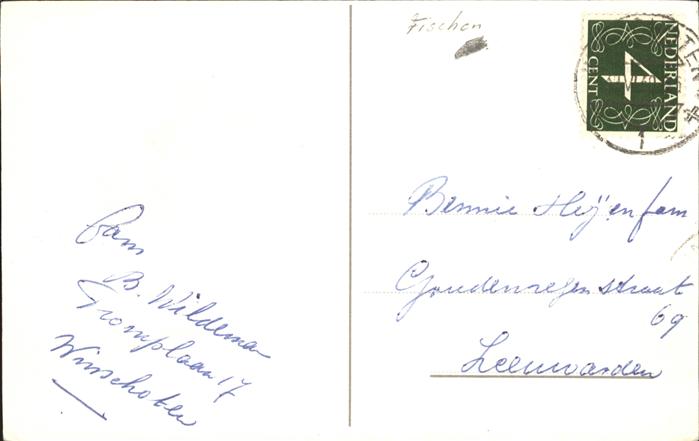 Fischen
NEDERLAND
4
CENT
Fam
B. Wildeman
Tromplaan 17
Winschoten
Bennie Heÿenfam
Goudenregenstraat
69
Leeuwarden